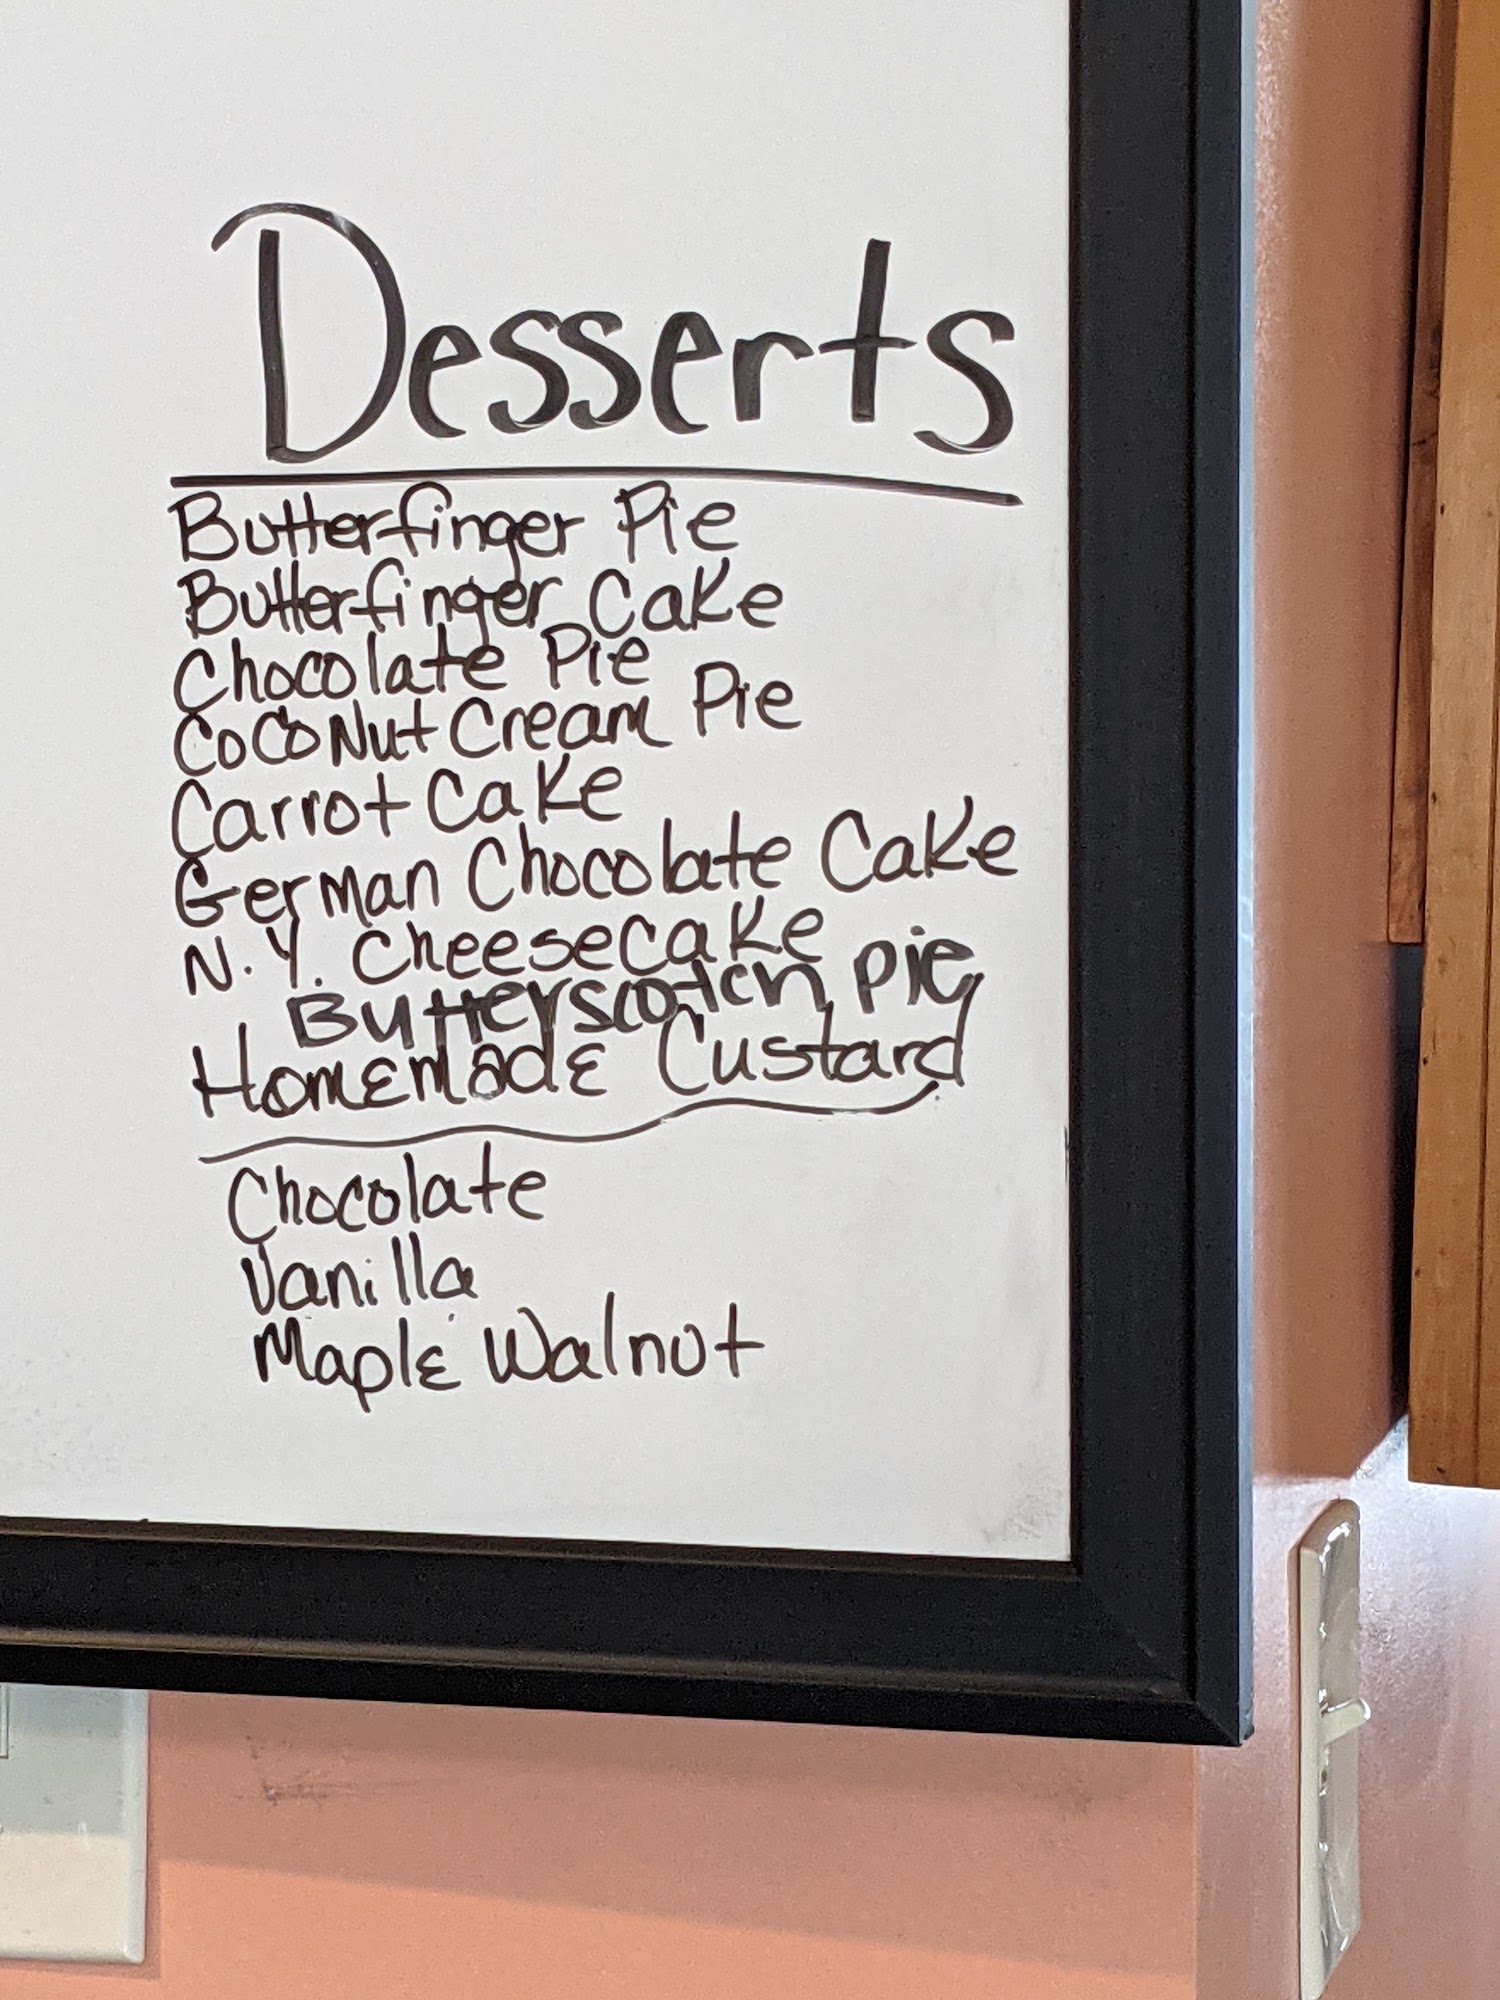 Desserts
Butterfinger Pie
Butterfinger Cake
Chocolate Pie
Coconut Cream Pie
Carrot Cake
German Chocolate Cake
N.Y. Cheesecake
Butterscotch pie
Homemade Custard
Chocolate
Vanilla
Maple Walnut